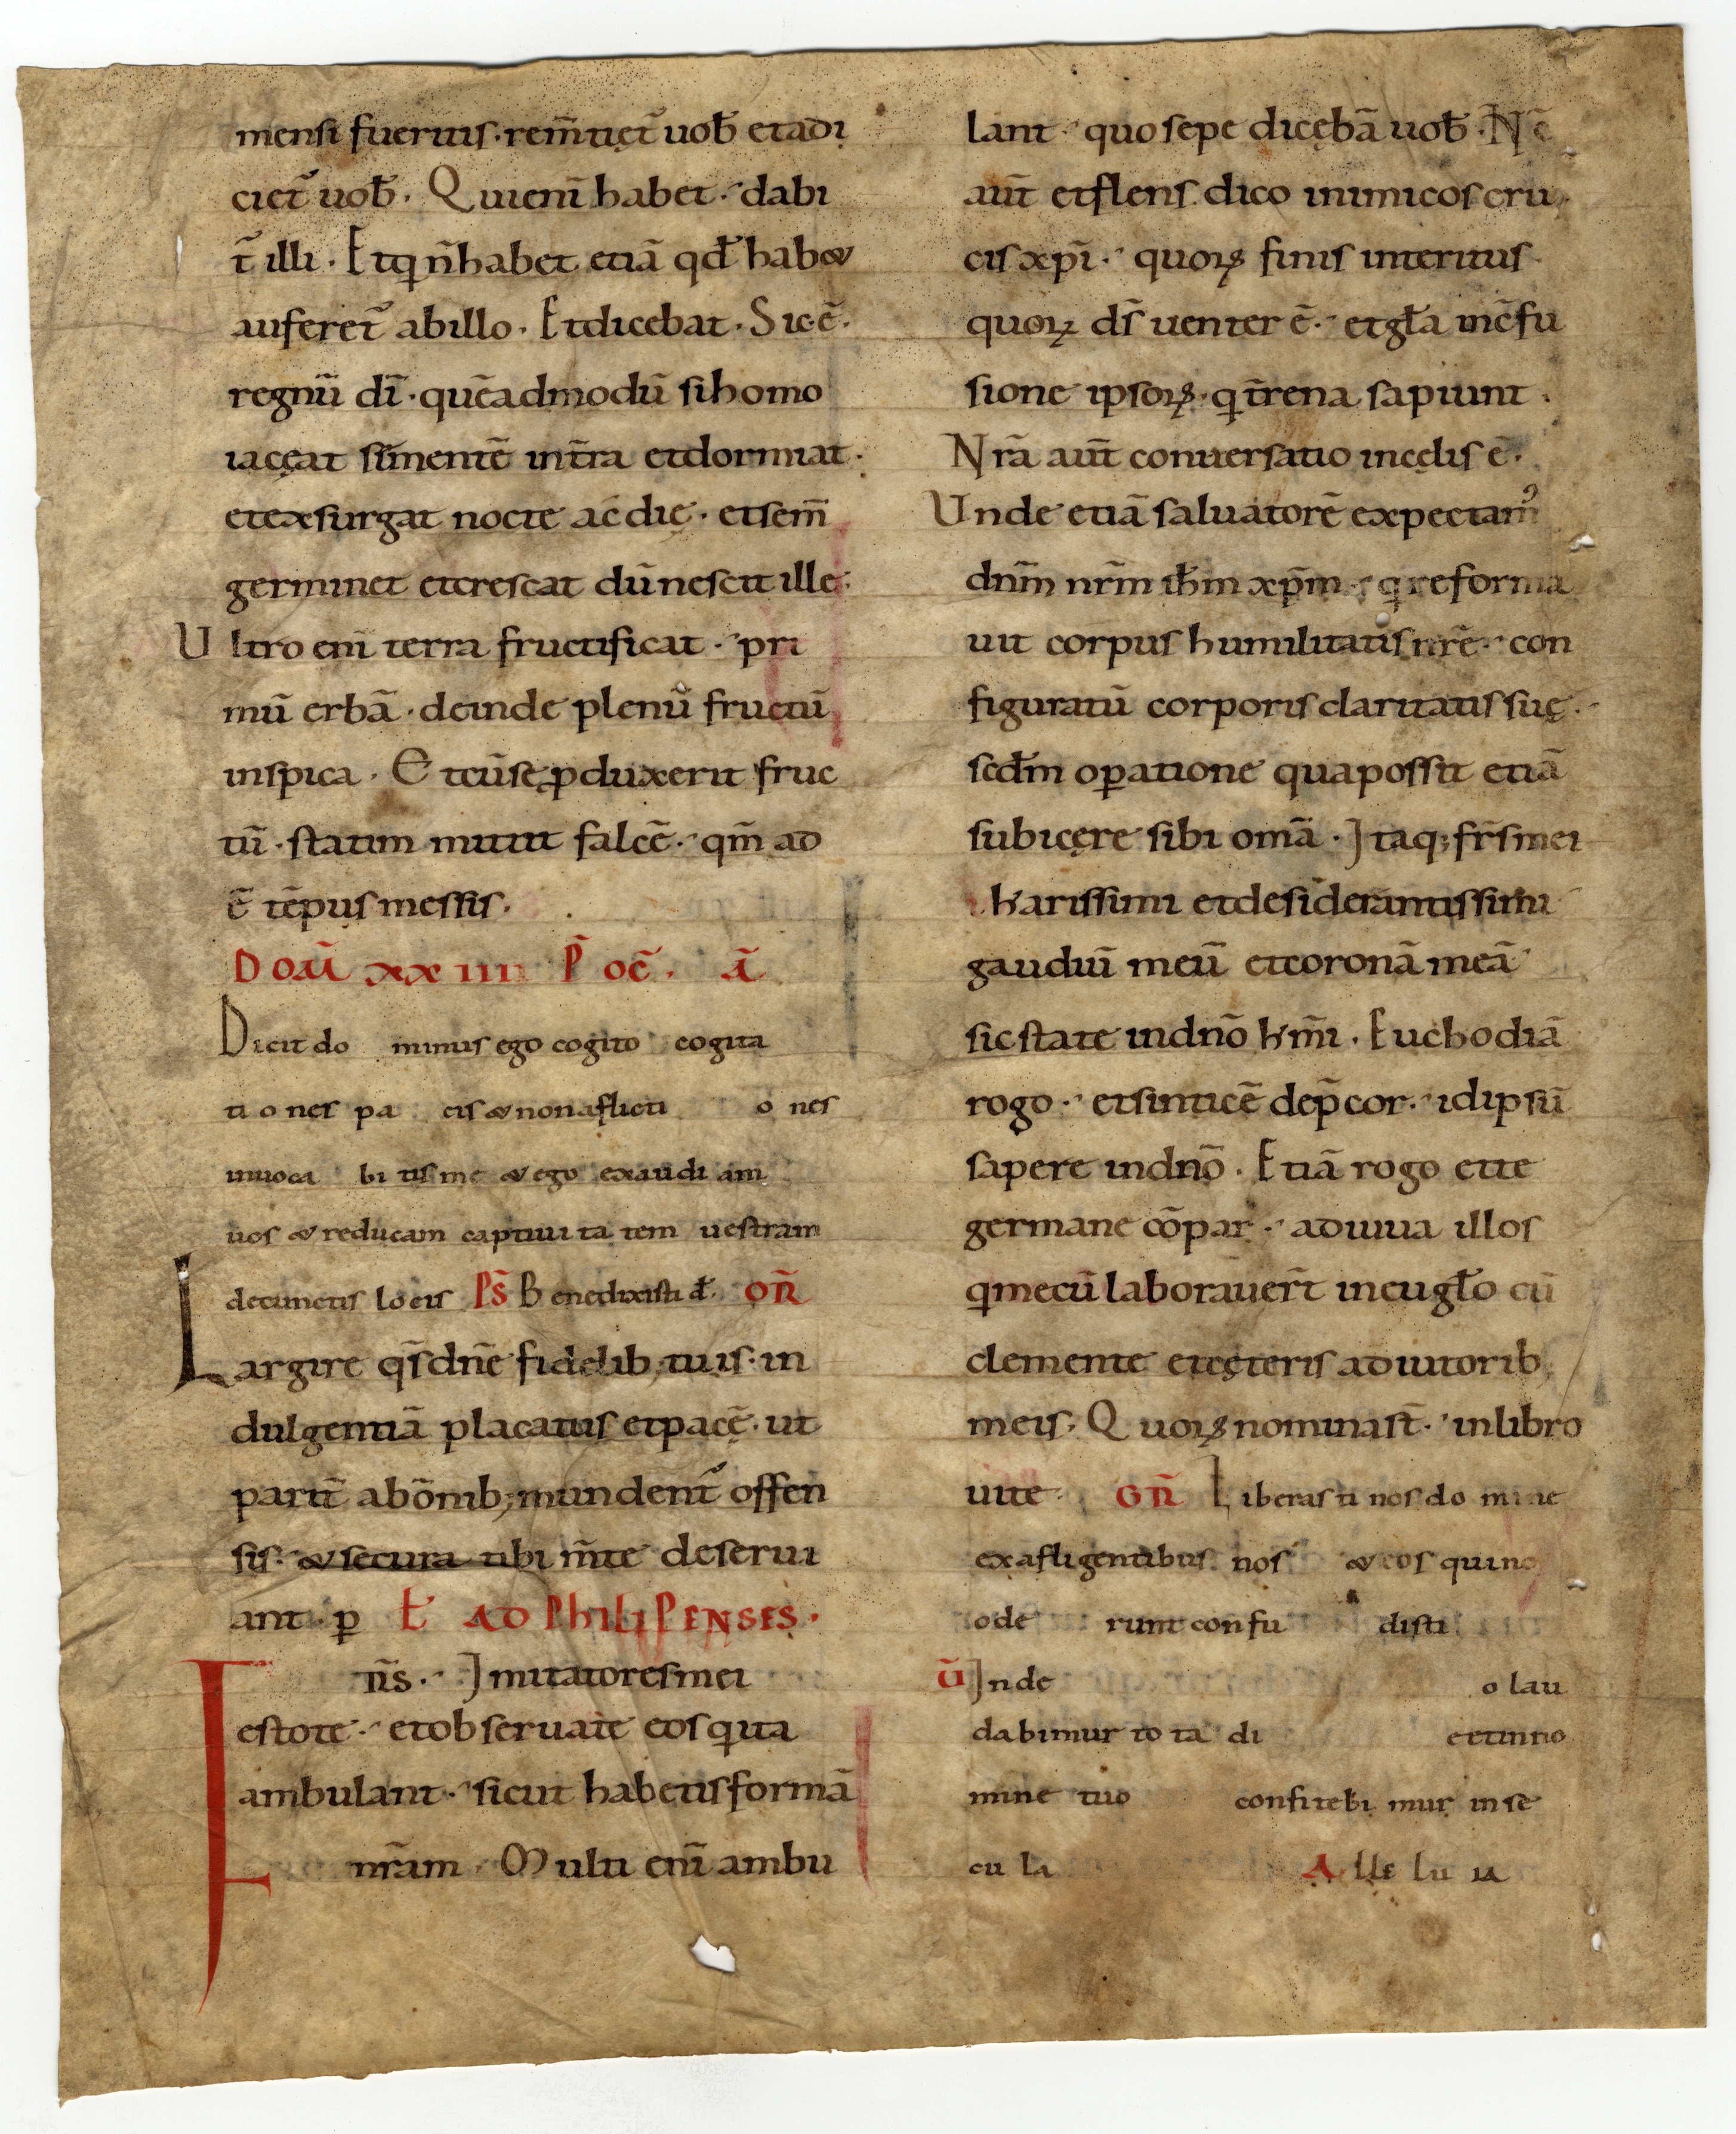 mensi fueritis · rem̄tiet᷑ uob̄ et adi
ciet᷑ uob̄ · Qui eni᷑ habet · dabi
t᷑ illi · Et q n̄ habet etiā qd̄ hab&
auferet᷑ ab illo · Et dicebat · Sic ē ·
regnū dī · quēadmodū si homo
iacęat sīmentē in t̄ra et dormiat ·
et exsurgat nocte ac̄ dię · et sem̄
germinet et crescat dū nescit ille ·
Ultro enī terra fructificat · pri
mū erbā · deinde plenū fructū
in spica · Et cū se ꝓduxerit fruc
tū · statim mittit falcē · qm̄ ad
ē tēpus messis ·
DOM̄ XXIIII P̄ OC̄ · Ā
Dicit do minus ego cogito cogita
ti o nes pa cis & non aflicti o nes
inuoca bi tis me & ego exaudi am
uos & reducam captiui ta tem uestram
de cunctis locis PS̄ Benedixisti d̄ · OR̄
Largire qs̄ dn̄e fidelib; tuis · in
dulgentiā placatus et pacę̄ · ut
parit̄ ab om̄ib; mundent᷑ offen
sis · & secura tibi m̄te deserui
ant · ꝑ Ł AD PhILIPENSES ·
FR̄S · Imitatores mei
estote · et obseruate eos qui ita
ambulant · sicut habetis formā
nr̄am · Multi enī ambu
lant · quo sepe dicębā uob̄ · N̄c̄
aut̄ et flens dico inimicos cru
cis xp̄i · quoꝝ finis interitus ·
quoꝝ ds̄ uenter ē · et gła in c̄fu
sione ipsoꝝ · q t̄rena sapiunt ·
Nrā aut̄ conuersatio in cęlis ē ·
Unde etiā saluatorē expectamꝰ
dnm̄ nrm̄ ih̄m xp̄m · q reforma
uit corpus humilitatis nrē · con
figuratū corporis claritatis suę ·
scdm̄ oꝑatione qua possit etiā
subicęre sibi omā · Itaq; frs̄ mei
karissimi et desiderantissimi
gaudiū meū et coronā meā
sic state in dn̄o km̄i · Euchodiā
rogo · et sinticē dep̄cor · id ipsū
sapere in dn̄o · Etiā rogo et te
germane cōpar · adiuua illos
q mecū laborauer̄t in eugło cū
clemente et cęteris adiutorib;
meis · Quoꝝ nomina st̄ · in libro
uite · GR̄ Liberasti nos do mine
ex afligentibus nos & eos qui nos
ode runt confu disti
V̄ In de o lau
dabimur to ta di et in no
mine tuo confitebi mur in se
cu la Alle lu ia